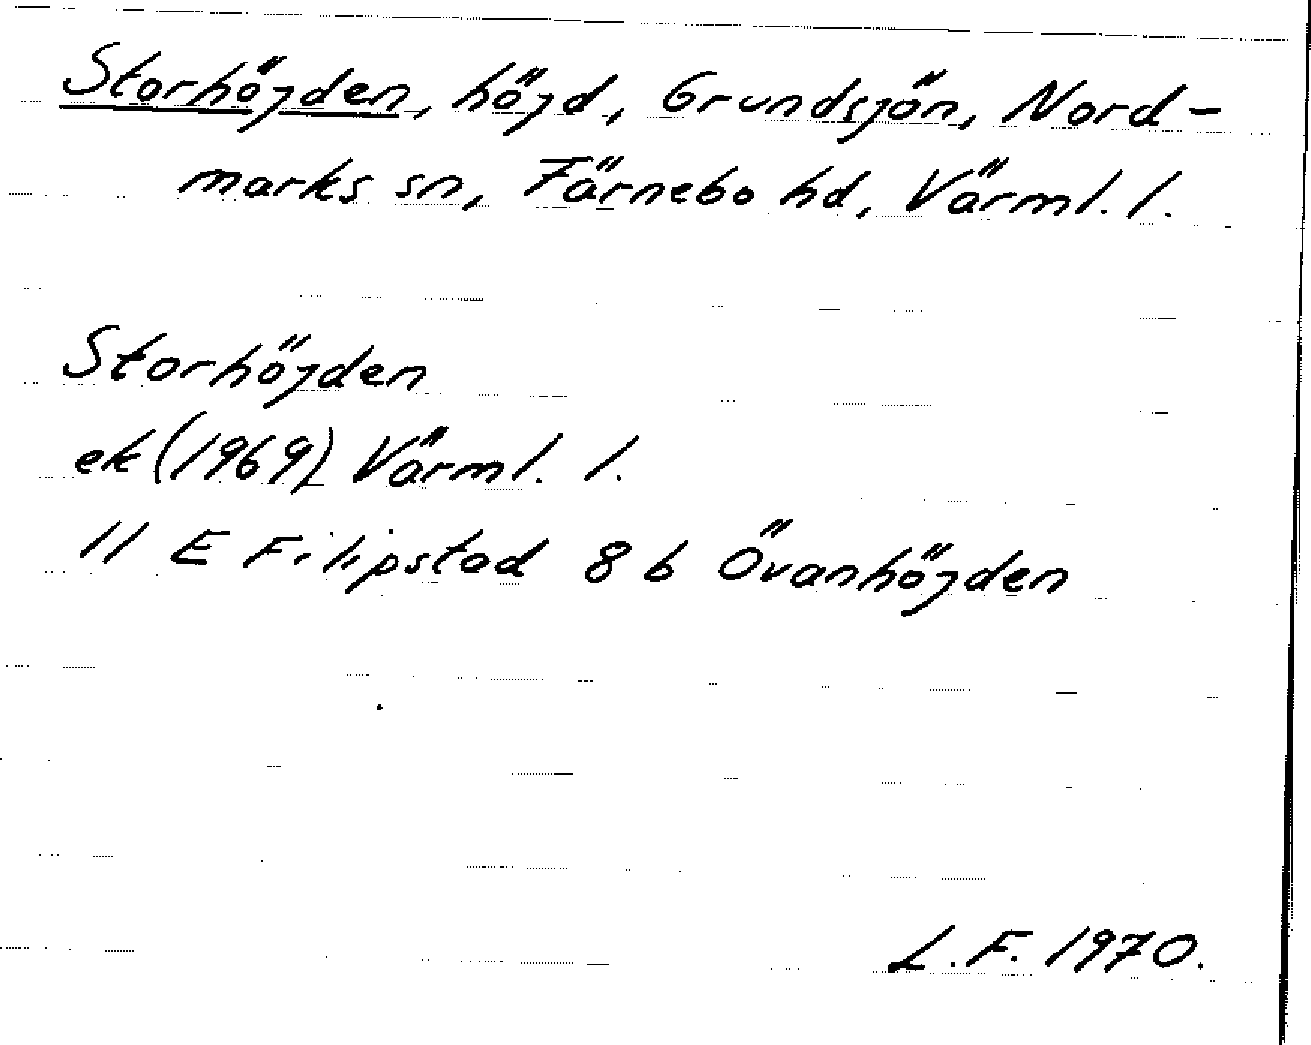 Storhöjden, höjd, Grundsjön, Nord-
marks sn, Färnebo hd, Värml. l.
Storhöjden
ek (1969) Värml. l.
11 E Filipstad 8 b Övanhöjden
L.F. 1970.